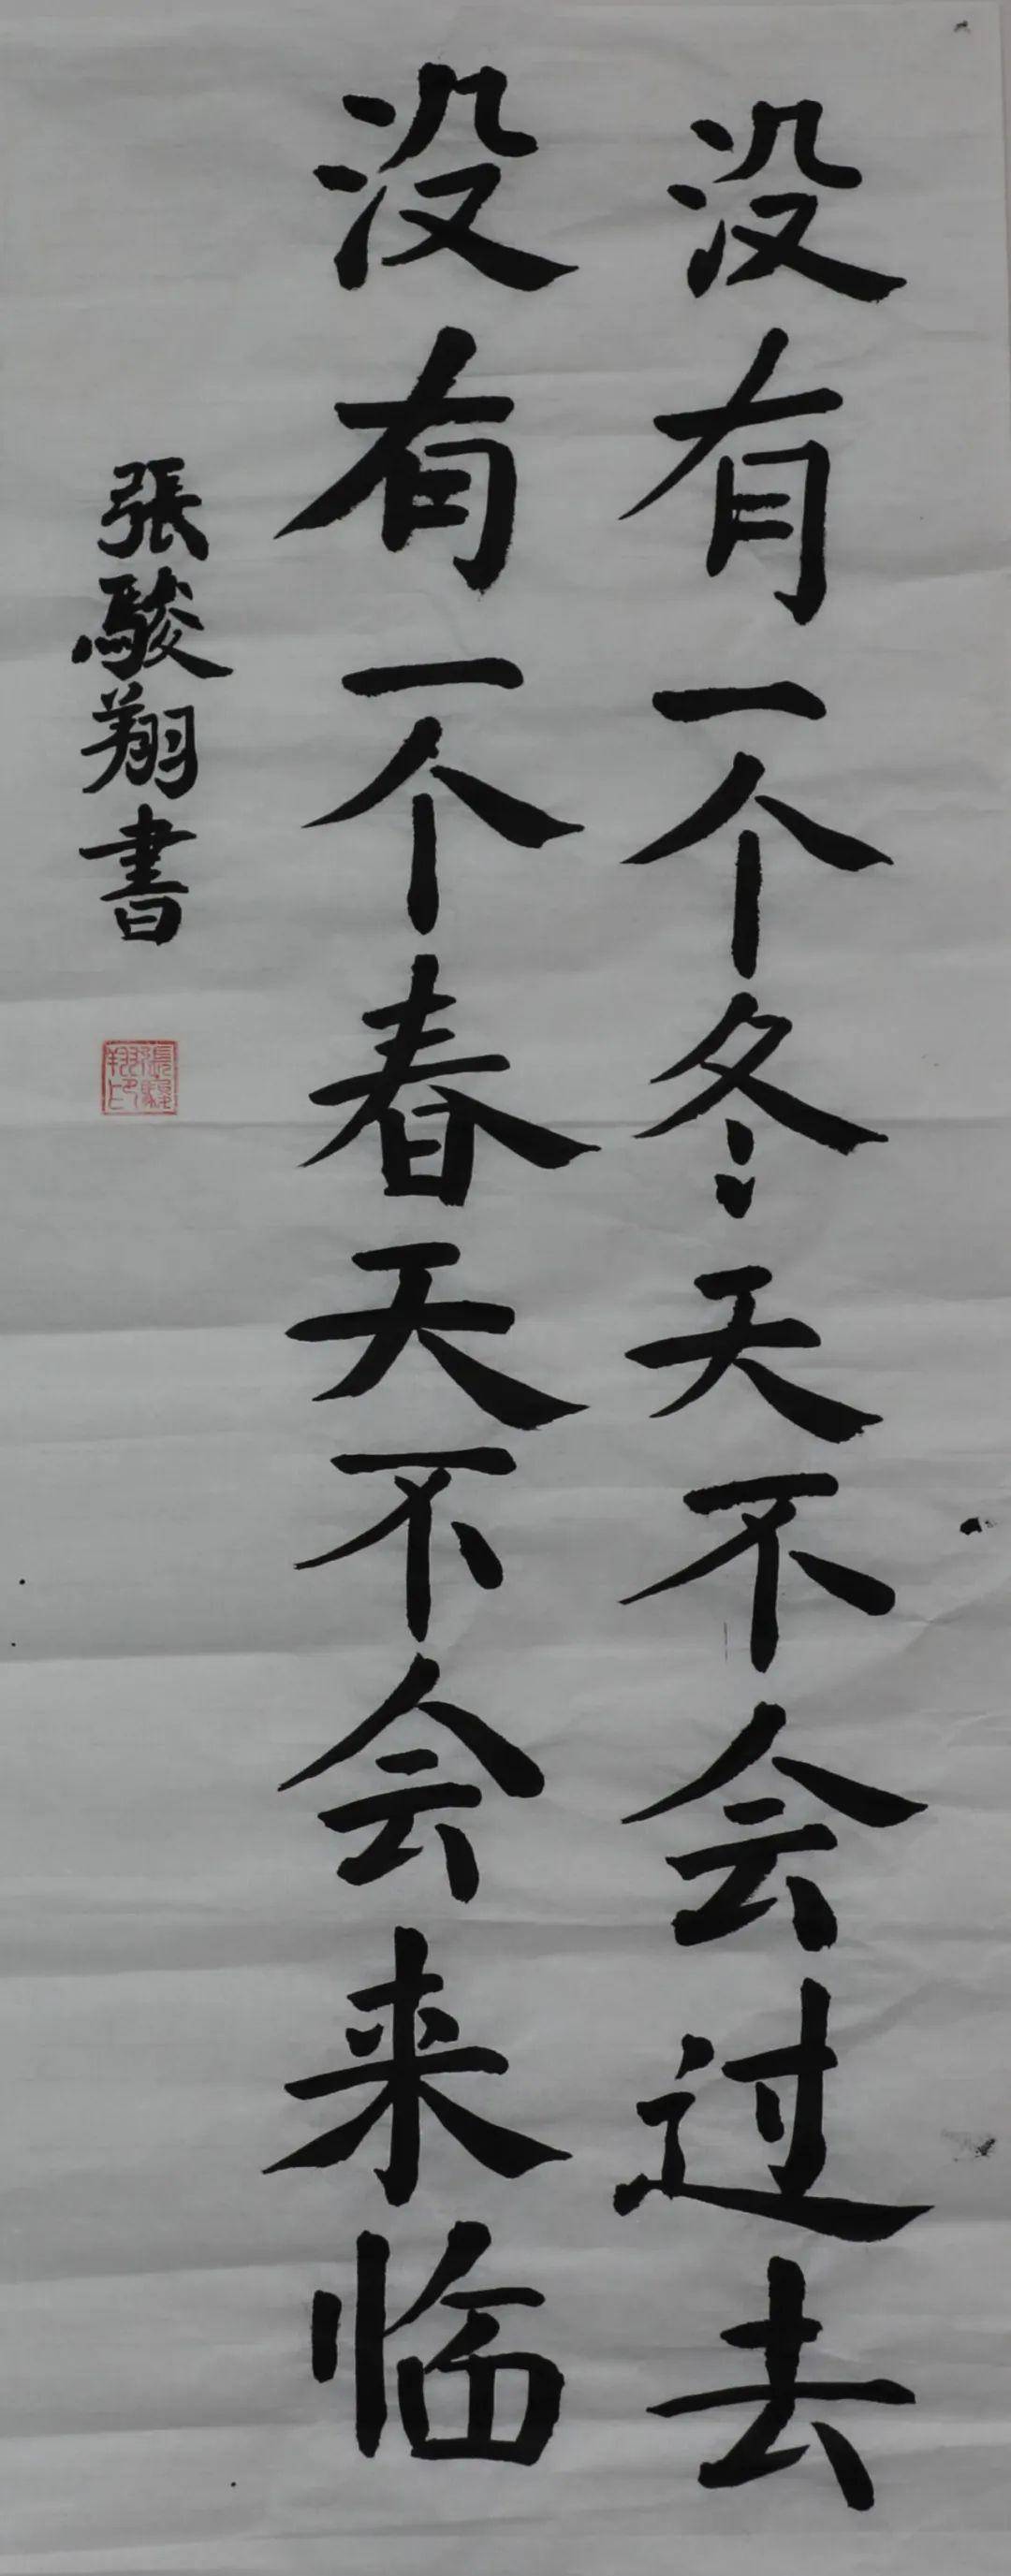 没有一个冬天不会过去
没有一个春天不会来临
張駿翔書
張駿翔印